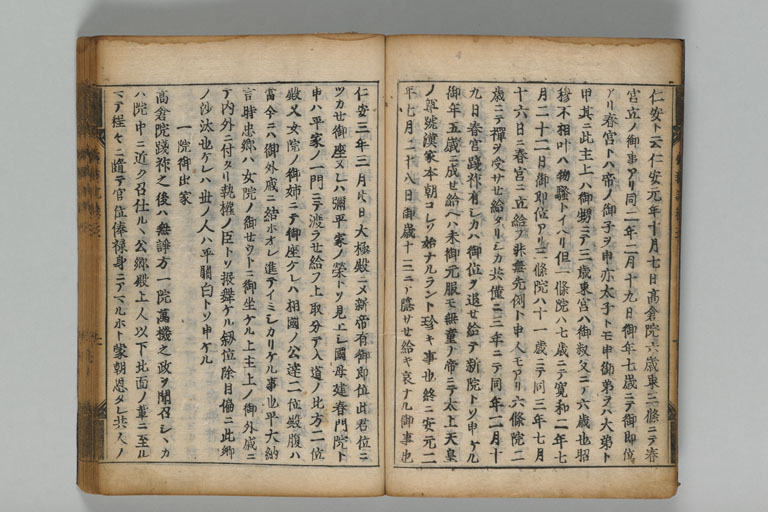 仁安ト云仁安元年十月七日高倉院六歳東三條ニテ春
宮立ノ御事アリ同二年二月十九日御年七歳ニテ御即位
アリ春宮トハ帝ノ御子ヲ申亦太子トモ申御弟ヲハ大弟ト
申其ニ此主上ハ御甥ニテ三歳東宮ハ御叔父ニテ六歳也昭
穆不相叶ハ物騒トイヘリ但一條院ハ七歳ニテ寛和二年七
月二十二日御即位アリ三條院ハ十一歳ニテ同三年七月
十六日ニ春宮ニ立給フ非無先例ト申人モアリ六條院二
歳ニテ禅ヲ受サセ給タリシカ共僅ニ三年ニテ同年二月十
九日春宮践祚有シカハ御位ヲ退セ給テ新院トソ申ケル
御年五歳ニ成セ給ヘハ未御元服モ無童ノ帝ニテ太上天皇
ノ尊號漢家本朝コレソ始ナルラント珍キ事也終ニ安元二
年七月二十八日御歳十三ニテ隠サセ給キ哀ナル御事也
仁安三年三月廿日大極殿ニメ新帝有御即位此君位ニ
ツカセ御座ヌレハ彌平家ノ榮トソ見エシ國母建春門院ト
申ハ平家ノ一門ニテ渡ラセ給フ上取分テ入道ノ北方二位
殿又女院ノ御姉ニテ御座ケレハ相國ノ公達二位殿腹ハ
當今ニハ御外戚ニ結ホオレ進テイミシカリケル事也平大納
言時忠卿ハ女院ノ御セウトニ御坐ケル上主上ノ御外戚ニ
テ内外ニ付タリ執權ノ臣トソ振舞ケル叙位除目偏ニ此卿
ノ沙汰也ケレハ世ノ人ハ平關白トソ申ケル
一院御出家
高倉院踐祚之後ハ無諍方一院萬機之政ヲ聞召シヽカ
ハ院中ニ近ク召仕ルヽ公卿殿上人以下北面ノ輩ニ至ル
マテ程々ニ隨テ官位俸禄身ニアマルホト蒙朝恩タレ共人ノ